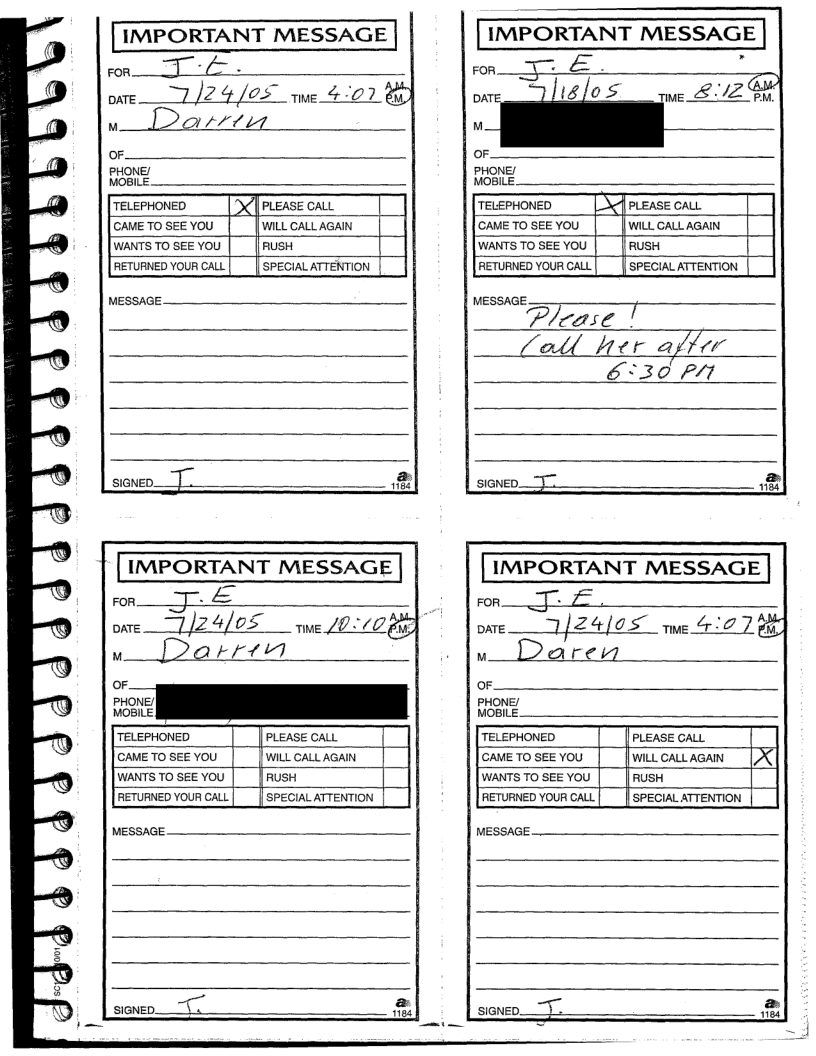 IMPORTANT MESSAGE
FOR J.E.
DATE 7/24/05 TIME 4:07 A.M. P.M.
M Darren
OF
PHONE/
MOBILE
TELEPHONED X PLEASE CALL
CAME TO SEE YOU WILL CALL AGAIN
WANTS TO SEE YOU RUSH
RETURNED YOUR CALL SPECIAL ATTENTION
MESSAGE
SIGNED J.
1184
IMPORTANT MESSAGE
FOR J.E.
DATE 7/18/05 TIME 8:12 A.M. P.M.
M
OF
PHONE/
MOBILE
TELEPHONED X PLEASE CALL
CAME TO SEE YOU WILL CALL AGAIN
WANTS TO SEE YOU RUSH
RETURNED YOUR CALL SPECIAL ATTENTION
MESSAGE
Please!
Call her after
6:30 PM
SIGNED J.
1184
IMPORTANT MESSAGE
FOR J.E
DATE 7/24/05 TIME 10:10 A.M. P.M.
M Darren
OF
PHONE/
MOBILE
TELEPHONED PLEASE CALL
CAME TO SEE YOU WILL CALL AGAIN
WANTS TO SEE YOU RUSH
RETURNED YOUR CALL SPECIAL ATTENTION
MESSAGE
SIGNED J.
1184
IMPORTANT MESSAGE
FOR J.E.
DATE 7/24/05 TIME 4:07 A.M. P.M.
M Daren
OF
PHONE/
MOBILE
TELEPHONED PLEASE CALL
CAME TO SEE YOU WILL CALL AGAIN X
WANTS TO SEE YOU RUSH
RETURNED YOUR CALL SPECIAL ATTENTION
MESSAGE
SIGNED J.
1184